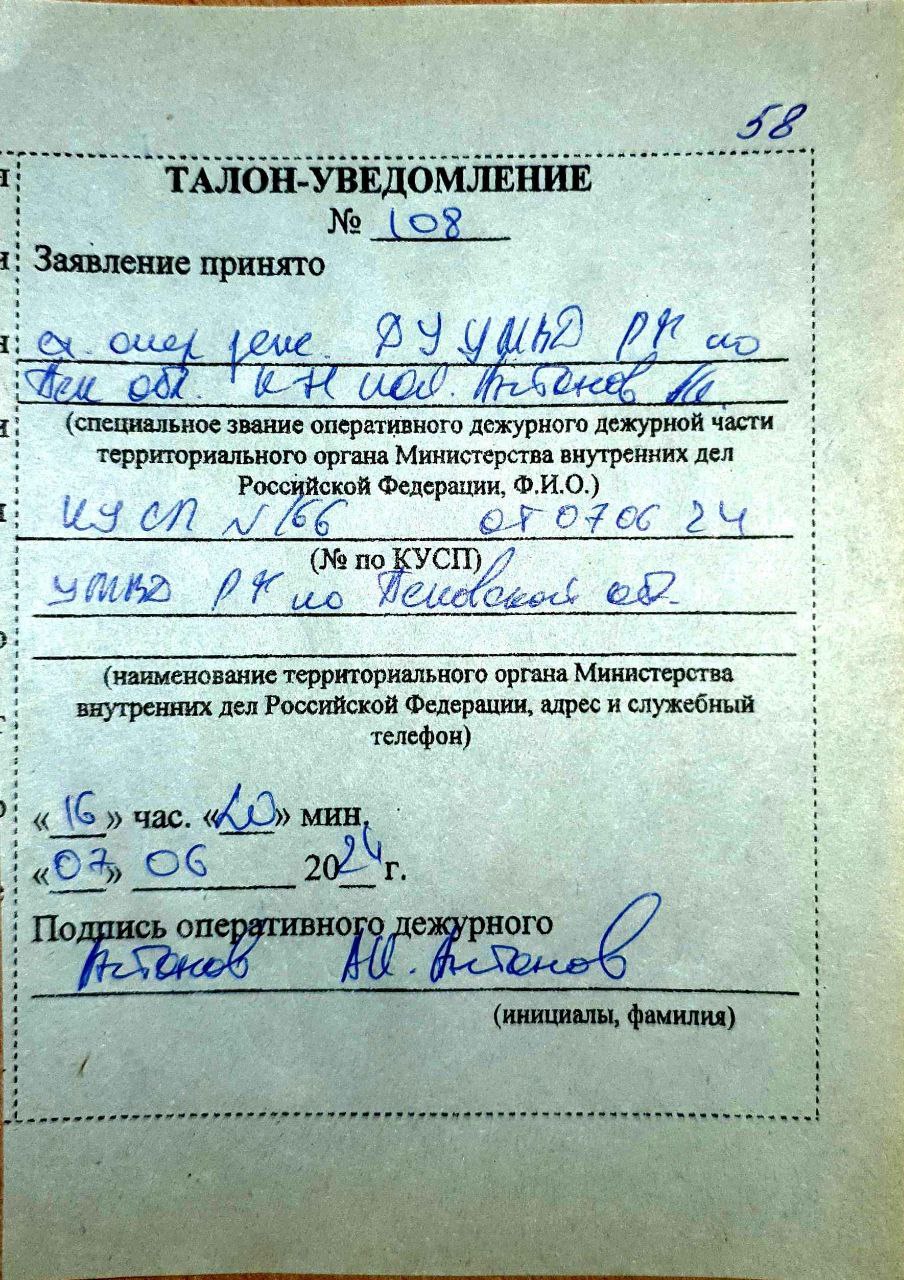 58
ТАЛОН-УВЕДОМЛЕНИЕ
№ 108
Заявление принято
ст. опер деж. ДЧ УМВД РФ по
Пск обл. п-к пол. Антонов
(специальное звание оперативного дежурного дежурной части
территориального органа Министерства внутренних дел
Российской Федерации, Ф.И.О.)
КУСП №166 от 07 06 24
(№ по КУСП)
УМВД РФ по Псковской обл.
(наименование территориального органа Министерства
внутренних дел Российской Федерации, адрес и служебный
телефон)
«16» час. «20» мин.
«07» 06 2024 г.
Подпись оперативного дежурного
Антонов А.И. Антонов
(инициалы, фамилия)